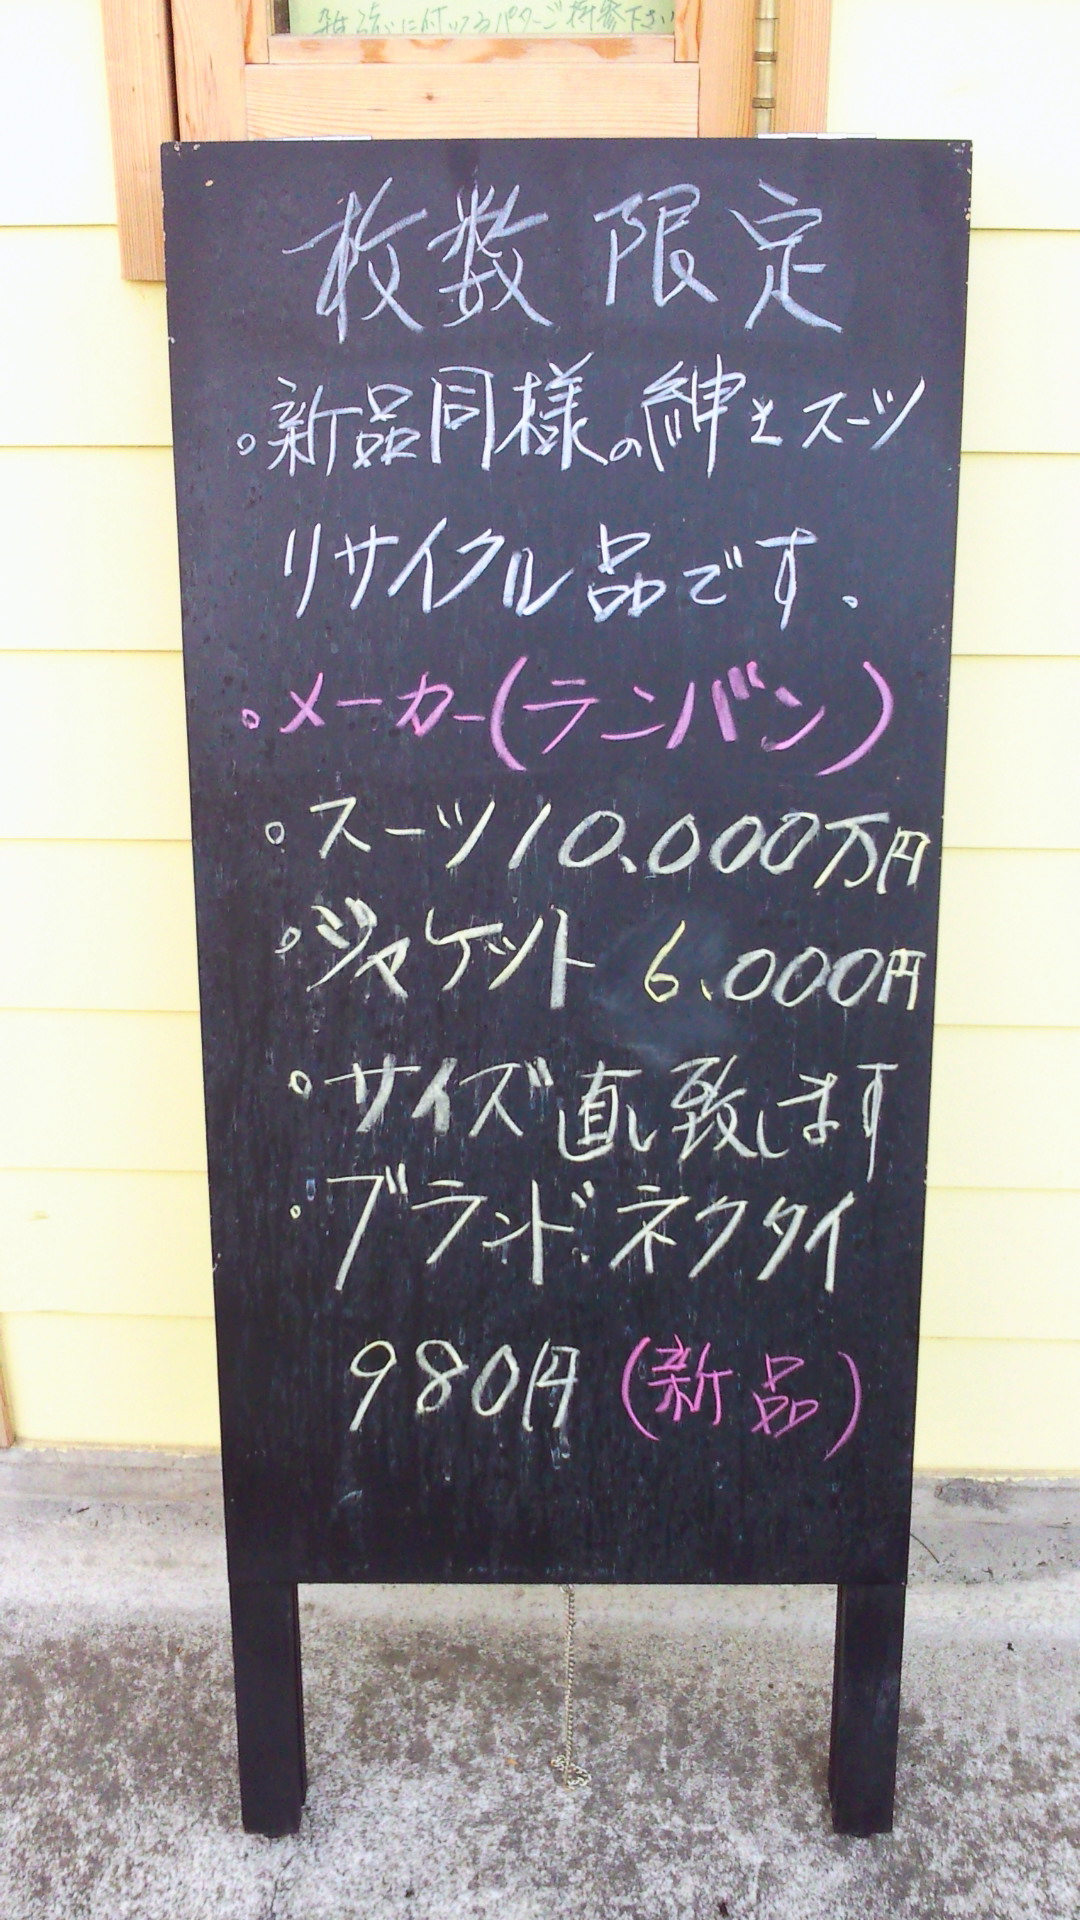 枚数限定
。新品同様の紳士スーツ
リサイクル品です.
。メーカー(ランバン)
。スーツ10.000万円
。ジャケット 6.000円
。サイズ直し致します
・ブランド.ネクタイ
980円(新品)